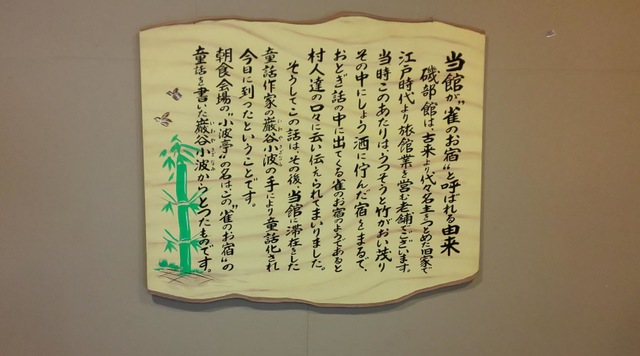 当館が〝雀のお宿〟と呼ばれる由来
磯部館は、古来より代々名主をつとめた旧家で
江戸時代より旅館業を営む老舗でございます。
当時このあたりは、うっそうと竹がおい茂り
その中にしょう洒に佇んだ宿をまるで、
おとぎ話の中に出てくる雀のお宿のようであると
村人達の口々に云い伝えられてまいりました。
そうしてこの話は、その後、当館に滞在をした
童話作家の巌谷小波の手により童話化され
今日に到ったということです。
朝食会場の〝小波亭〟の名は、この〝雀のお宿〟の
童話を書いた巌谷小波からとったものです。